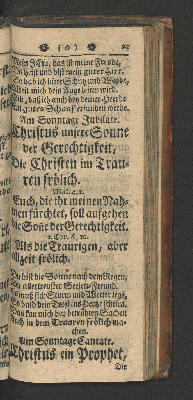 (o)
Mein JEsu, das ist meine Freude,
Du bist und bleibst mein guter Hirt.
weil mich dein Auge leiten wird.
daß ich auch bey deiner Heerde
Ein gutes Schaaf erfunden werde.
Am Sonntage Jubilate.
Christus unsere Sonne
der Gerechtigkeit,
Die Christen im Trau-
ren frölich.
Mal. 4, 2.
Euch, die ihr meinen Nah-
men fürchtet, soll aufgehen
die Soñe der Gerechtigkeit.
2 Cor. 6, 10.
Als die Traurigen, aber
allzeit frölich.
Du bist die Sonne nach dem Regen,
Du allertreuster Seelen-Freund.
Das kan mich bey betrübten Sachen
Auch in dem Trauren frölich ma-
chen.
Am Sonntage Cantate.
Christus ein Prophet,
Die